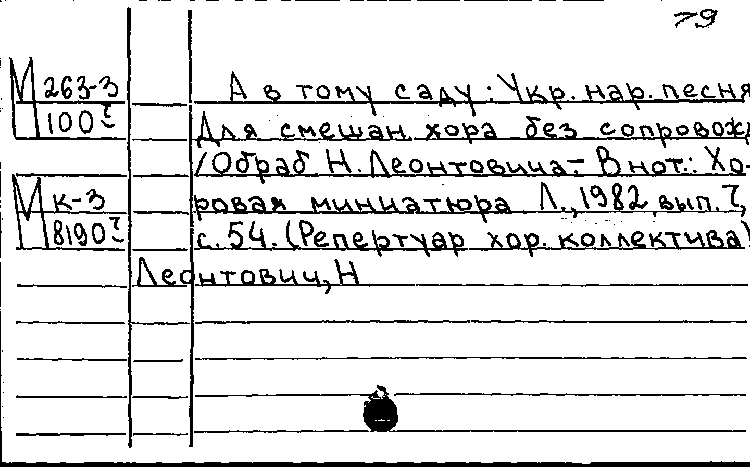 79
М 263-3 А в тому саду: Укр. нар. песня
100 Для смешан. хора без сопровож.
/Обраб Н. Леонтовича.- В нот.: Хо-
М к-3 ровая миниатюра Л., 1982, вып. 7,
8190 с. 54. (Репертуар хор. коллектива)
Леонтович, Н